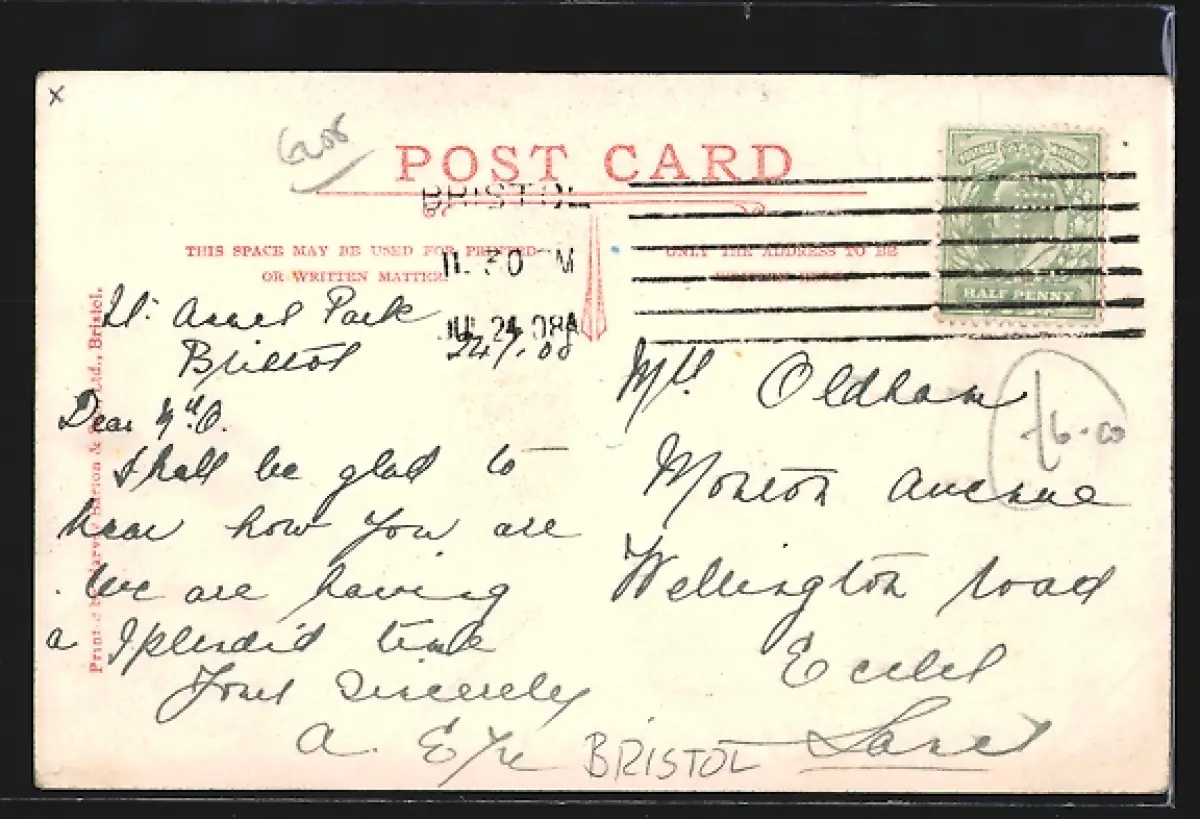 x
POST CARD
BRISTOL
THIS SPACE MAY BE USED FOR PRINTED
OR WRITTEN MATTER.
ONLY THE ADDRESS TO BE
11.30 M
JUL 24 08
HALF PENNY
St. Annes Park
Bristol 24/7.08
Dear Mrs. O.
Shall be glad to
hear how you are
We are having
a splendid time
Yours sincerely
A.
BRISTOL
Mrs. Oldham
Monton Avenue
Wellington Road
Eccles
Lancs
£6.00
Ltd., Bristol.